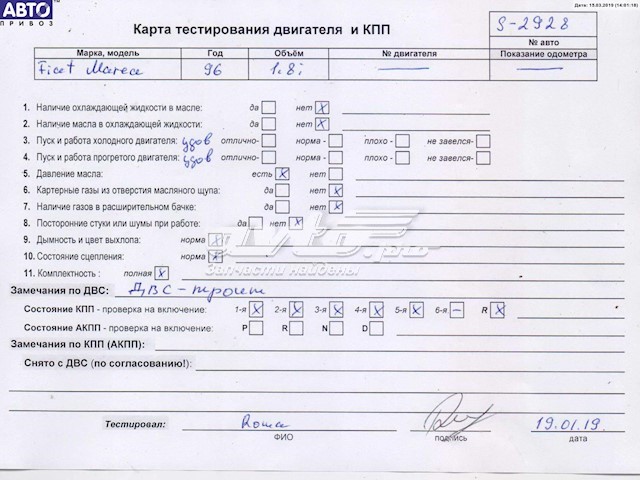 АВТО
ПРИВОЗ
TM
Дата: 15.03.2019 (14:01:18)
Карта тестирования двигателя и КПП
S-2928
№ авто
Марка, модель Год Объём № двигателя Показание одометра
Fiat Marea 96 1.8i — —
1. Наличие охлаждающей жидкости в масле: да нет X
2. Наличие масла в охлаждающей жидкости: да нет X
3. Пуск и работа холодного двигателя: удов отлично- норма - плохо - не завелся-
4. Пуск и работа прогретого двигателя: удов отлично- норма - плохо - не завелся-
5. Давление масла: есть X нет
6. Картерные газы из отверстия масляного щупа: да нет X
7. Наличие газов в расширительном бачке: да нет X
8. Посторонние стуки или шумы при работе: да нет X
9. Дымность и цвет выхлопа: норма X
10. Состояние сцепления: норма X
11. Комплектность : полная X
Запчасти найдены
Замечания по ДВС: ДВС - троит
Состояние КПП - проверка на включение: 1-я X 2-я X 3-я X 4-я X 5-я X 6-я – R X
Состояние АКПП - проверка на включение: P R N D
Замечания по КПП (АКПП):
Снято с ДВС (по согласованию!):
Тестировал: Roma 19.01.19.
ФИО подпись дата